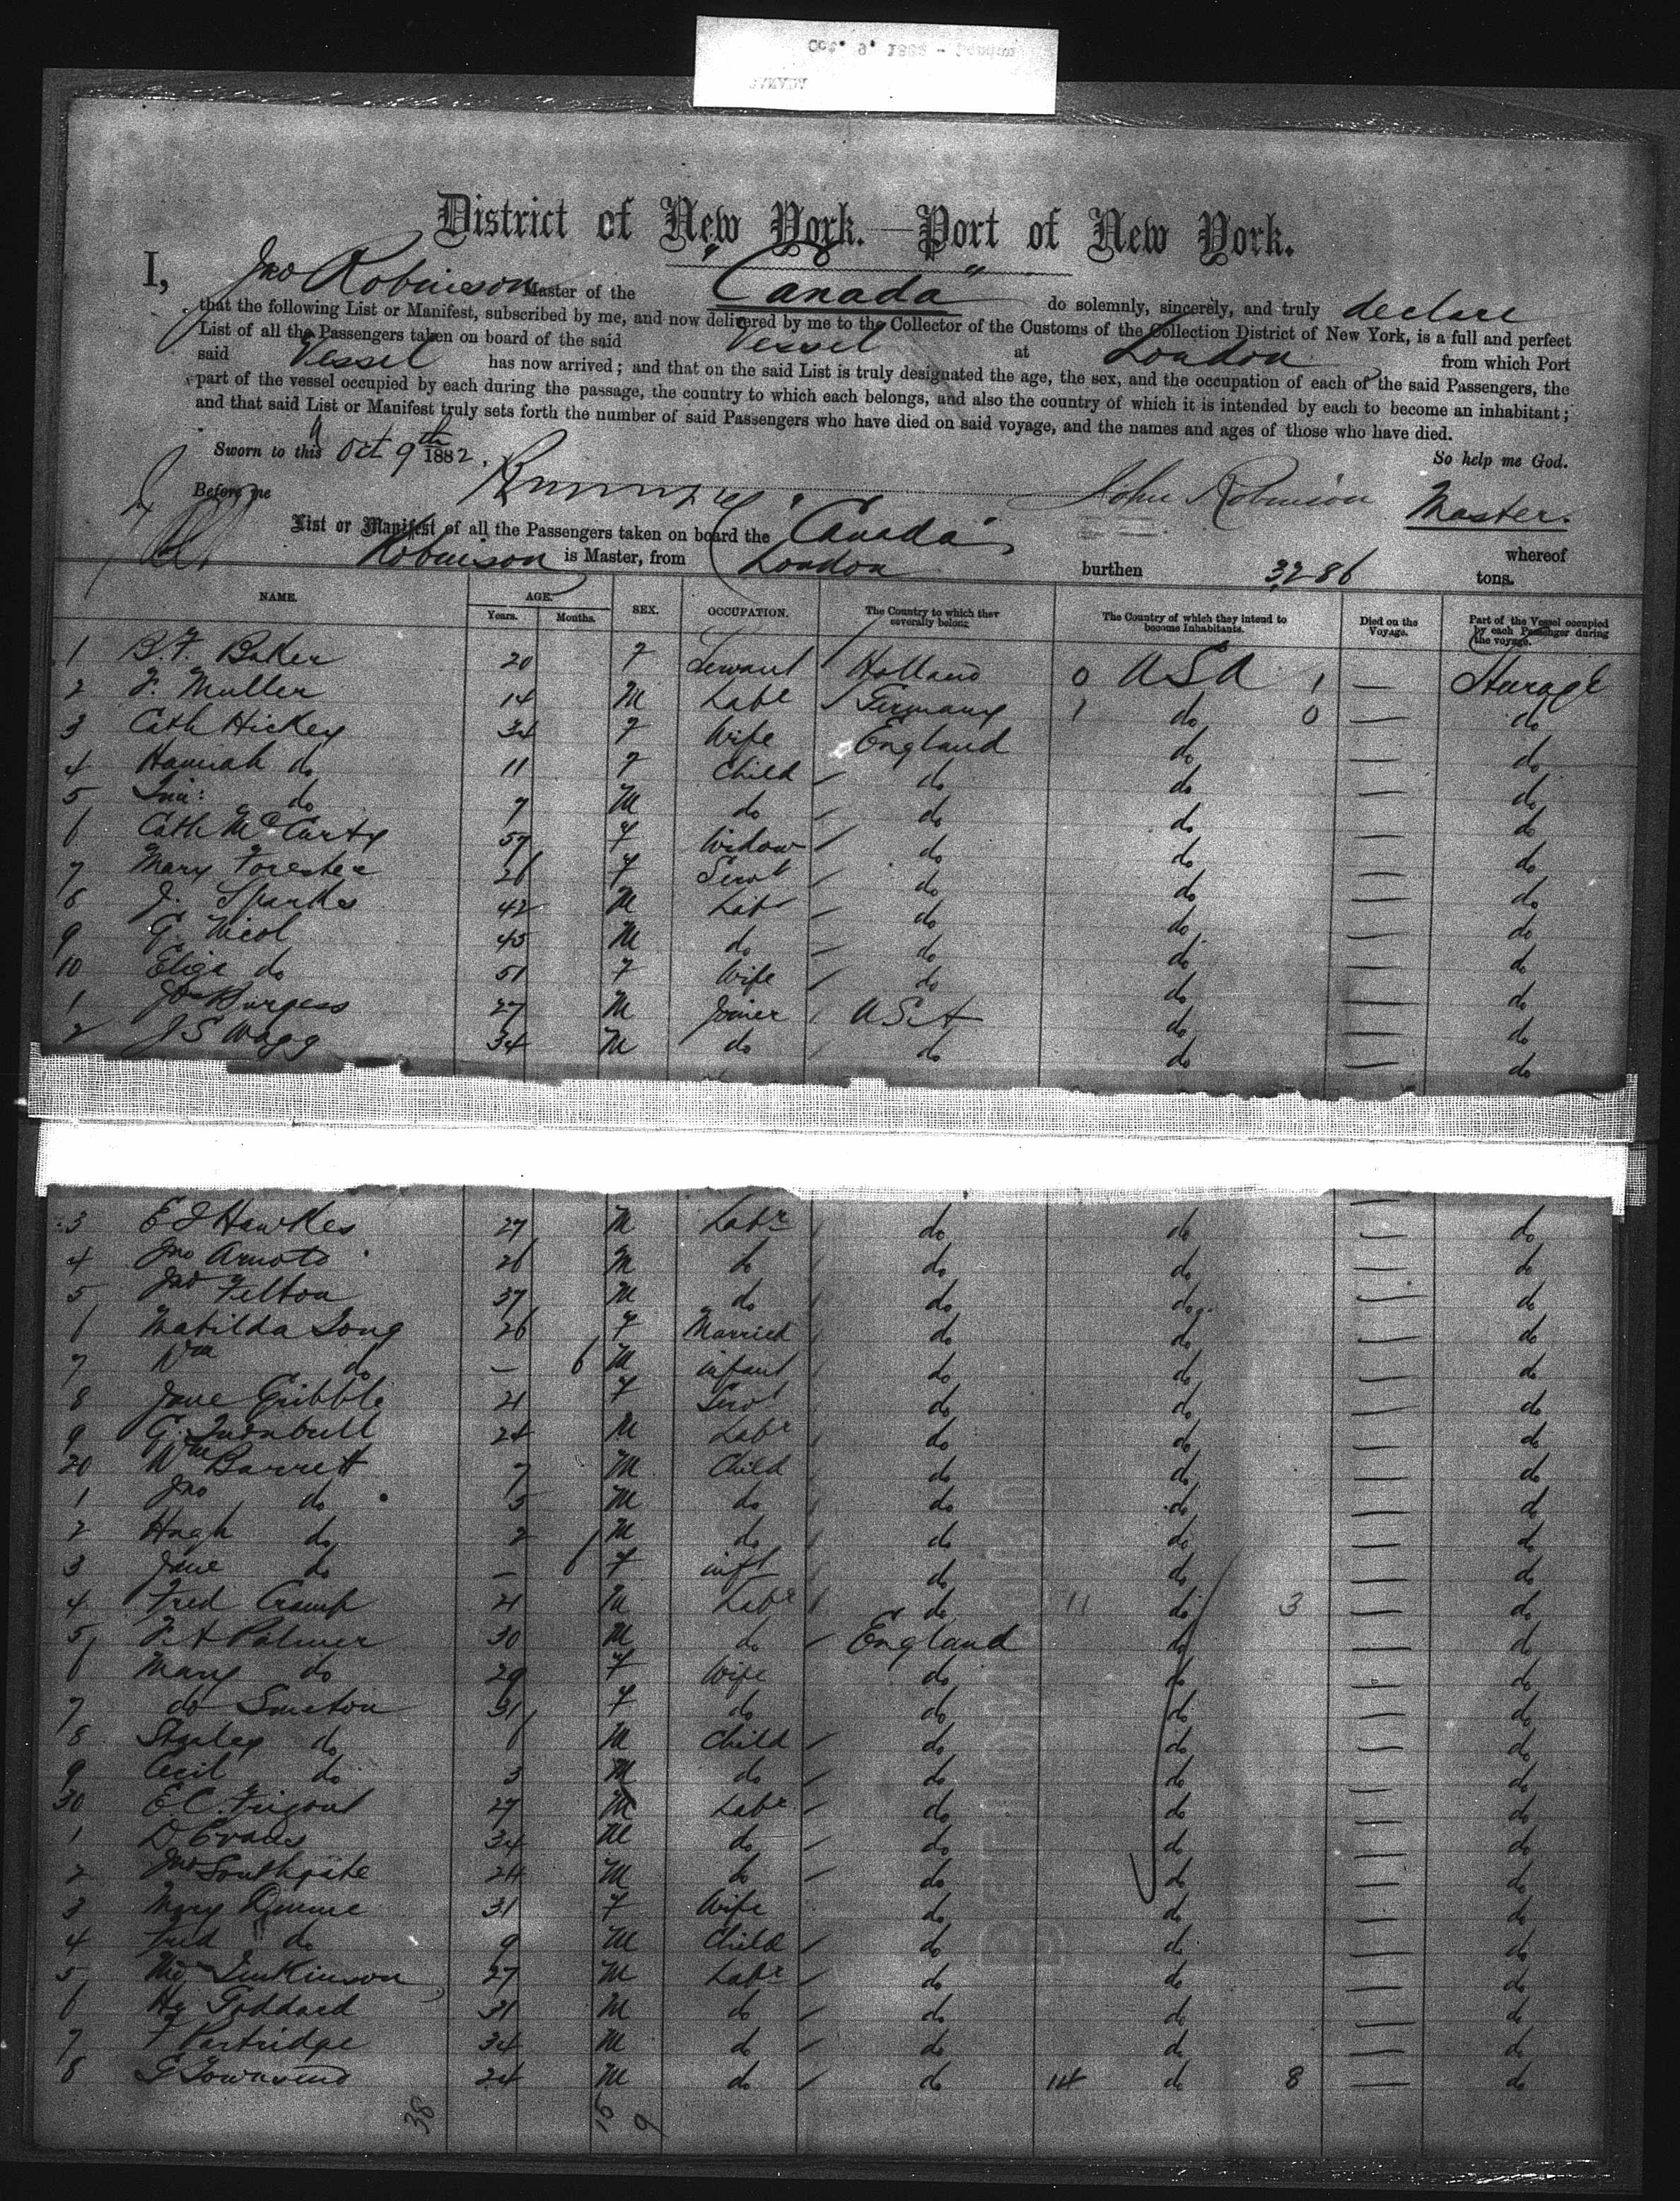 District of New York.—Port of New York.
I, Jno Robinson Master of the "Canada" do solemnly, sincerely, and truly declare
that the following List or Manifest, subscribed by me, and now delivered by me to the Collector of the Customs of the Collection District of New York, is a full and perfect
List of all the Passengers taken on board of the said Vessel at London from which Port
said Vessel has now arrived; and that on the said List is truly designated the age, the sex, and the occupation of each of the said Passengers, the
part of the vessel occupied by each during the passage, the country to which each belongs, and also the country of which it is intended by each to become an inhabitant;
and that said List or Manifest truly sets forth the number of said Passengers who have died on said voyage, and the names and ages of those who have died.
Sworn to this Oct 9th 1882. So help me God.
Before me John Robinson Master.
List or Manifest of all the Passengers taken on board the "Canada" whereof
Robinson is Master, from London burthen 3286 tons.
NAME. AGE. Years. Months. SEX. OCCUPATION. The Country to which they severally belong. The Country of which they intend to become Inhabitants. Died on the Voyage. Part of the Vessel occupied by each Passenger during the voyage.
1 B.F. Baker 20 F Servant Holland 0 USA 1 — Sturage
2 F. Muller 14 M Labr Germany 1 do 0 — do
3 Cath Hickey 34 F Wife England do — do
4 Hannah do 11 F Child do do — do
5 do 7 M do do do — do
6 Cath McCarty 57 F Widow do do — do
7 Mary Forester 26 F Servt do do — do
8 J. Sparks 42 M Labr do do — do
9 G. Nicol 45 M do do do — do
10 Eliza do 51 F Wife do do — do
1 Jno Burgess 27 M Joiner USA do — do
2 J S Wagg 34 M do do do — do
3 E J Hawkes 27 M Labr do do — do
4 Jno Arnold 26 M do do do — do
5 Jno Felton 37 M do do do — do
6 Matilda Long 26 F Married do do — do
7 Wm do — 6 M infant do do — do
8 Jane Gribble 21 F Servt do do — do
9 G. Turnbull 24 M Labr do do — do
20 Wm Barrett 7 M Child do do — do
1 Jno do 5 M do do do — do
2 Hugh do 2 M do do do — do
3 Jane do — 6 F inft do do — do
4 Fred Cramp 21 M Labr do 11 do 3 — do
5 F. A Palmer 30 M do England do — do
6 Mary do 29 F Wife do do — do
7 do Smeton 31 F do do do — do
8 Stanley do 6 M Child do do — do
9 Cecil do 3 M do do do — do
30 E.C. 27 M Labr do do — do
1 D Evans 34 M do do do — do
2 Jno Southgate 24 M do do do — do
3 Mary 31 F Wife do do — do
4 Fred do 9 M Child do do — do
5 Jenkinson 27 M Labr do do — do
6 Hy Goddard 31 M do do do — do
7 Partridge 34 M do do do — do
8 G Townsend 24 M do do 14 do 8 — do
38 16 9